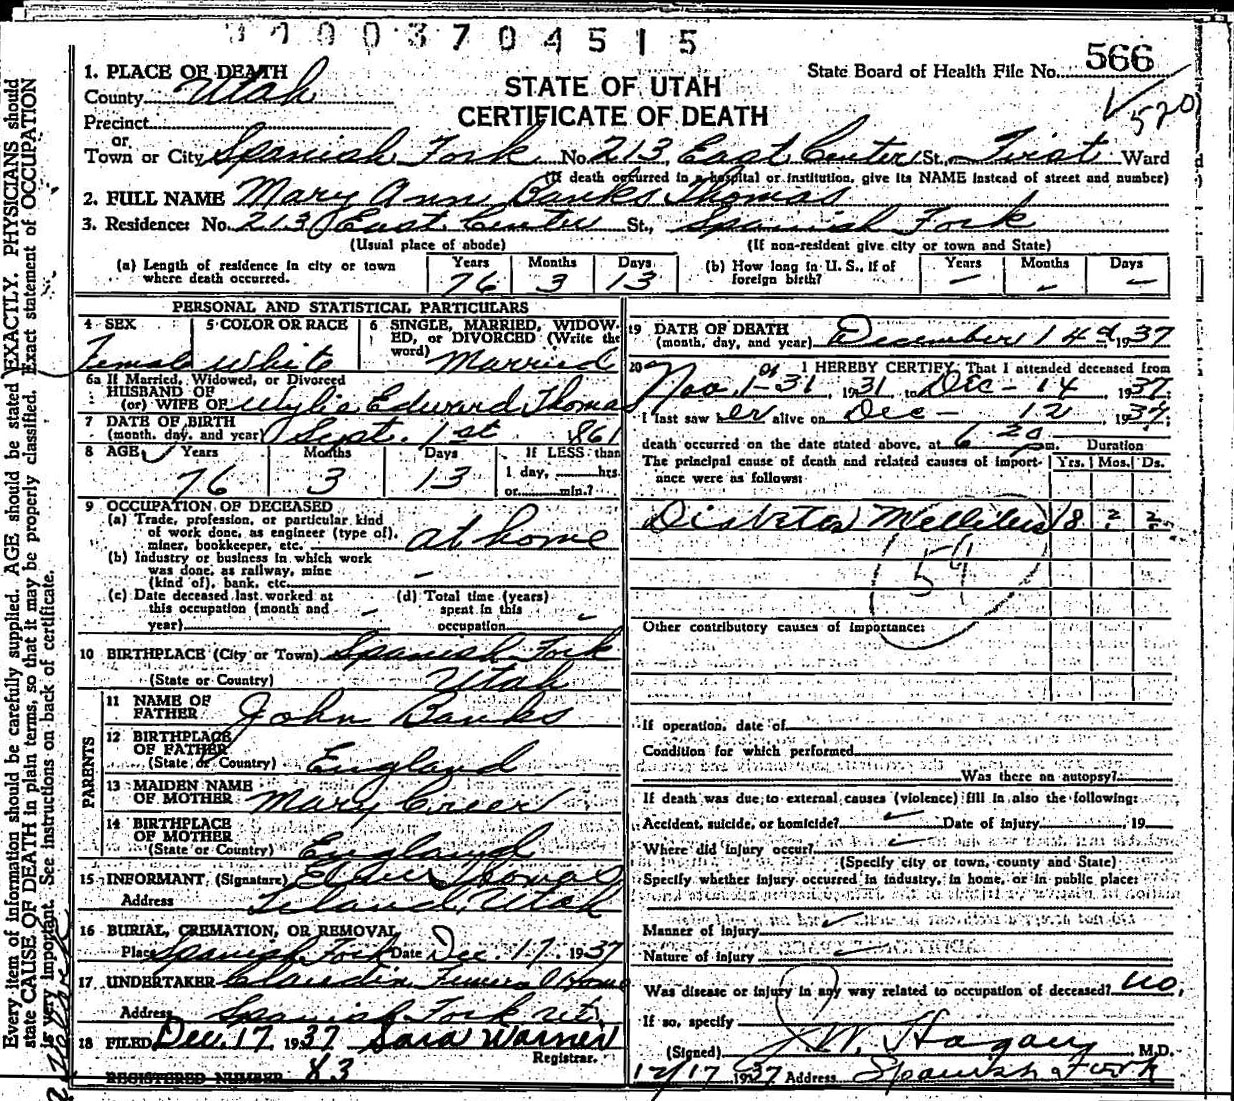 34003704515
566
1. PLACE OF DEATH
County Utah
STATE OF UTAH
CERTIFICATE OF DEATH
State Board of Health File No.
✓ 520
Precinct
or
Town or City Spanish Fork No. 213 East Center St., First Ward
(If death occurred in a hospital or institution, give its NAME instead of street and number)
2. FULL NAME Mary Ann Banks Thomas
3. Residence: No. 213 East Center St., Spanish Fork
(Usual place of abode) (If non-resident give city or town and State)
(a) Length of residence in city or town where death occurred. Years 76 Months 3 Days 13
(b) How long in U. S., if of foreign birth? Years – Months – Days –
PERSONAL AND STATISTICAL PARTICULARS
4 SEX Female
5 COLOR OR RACE White
6 SINGLE, MARRIED, WIDOWED, or DIVORCED (Write the word) Married
6a If Married, Widowed, or Divorced
HUSBAND OF
(or) WIFE OF Wylie Edward Thomas
7 DATE OF BIRTH
(month, day, and year) Sept. 1st 1861
8 AGE Years 76 Months 3 Days 13 If LESS than 1 day, hrs. or min.?
9 OCCUPATION OF DECEASED
(a) Trade, profession, or particular kind of work done, as engineer (type of), miner, bookkeeper, etc. at home
(b) Industry or business in which work was done, as railway, mine (kind of), bank, etc. –
(c) Date deceased last worked at this occupation (month and year) –
(d) Total time (years) spent in this occupation –
10 BIRTHPLACE (City or Town) Spanish Fork
(State or Country) Utah
PARENTS
11 NAME OF FATHER John Banks
12 BIRTHPLACE OF FATHER
(State or Country) England
13 MAIDEN NAME OF MOTHER Mary Creer
14 BIRTHPLACE OF MOTHER
(State or Country) England
15 INFORMANT, (Signature) Thomas
Address Leland, Utah
16 BURIAL, CREMATION, OR REMOVAL
Place Spanish Fork Date Dec. 17. 1937
17 UNDERTAKER Claudin Funeral Home
Address Spanish Fork Ut.
18 FILED Dec. 17 1937 Sara Warner
Registrar.
REGISTERED NUMBER 83
19 DATE OF DEATH
(month, day, and year) December 14 1937
20 I HEREBY CERTIFY, That I attended deceased from
Nov. 1-31, 1931 to Dec – 14 1937
I last saw her alive on Dec – 12, 1937
death occurred on the date stated above, at 6:20 pm.
Duration
The principal cause of death and related causes of importance were as follows: Yrs. Mos. Ds.
Diabetes Mellitus 18 2 2
59
Other contributory causes of importance:
If operation, date of
Condition for which performed
Was there an autopsy?
If death was due to external causes (violence) fill in also the following:
Accident, suicide, or homicide? ✓ Date of injury 19
Where did injury occur? ✓
(Specify city or town, county and State)
Specify whether injury occurred in industry, in home, or in public place:
Manner of injury ✓
Nature of injury ✓
Was disease or injury in any way related to occupation of deceased? no.
If so, specify
(Signed) J. W. Hagan M.D.
12/17 1937 Address Spanish Fork
Every item of information should be carefully supplied. AGE should be stated EXACTLY. PHYSICIANS should
state CAUSE OF DEATH in plain terms, so that it may be properly classified. Exact statement of OCCUPATION
is very important. See instructions on back of certificate.